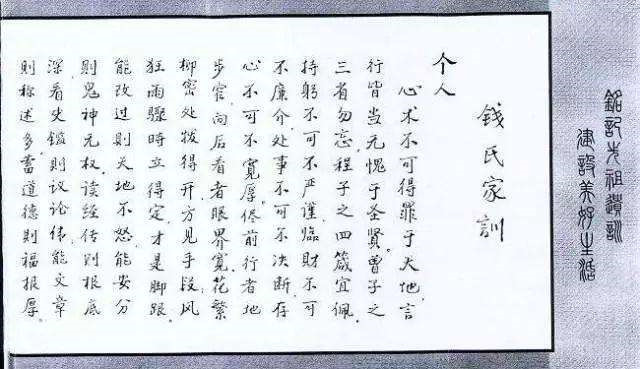 銘記先祖遺訓
建設美好生活
钱氏家训
个人
心术不可得罪于天地.言
行皆当无愧于圣贤.曾子之
三省勿忘.程子之四箴宜佩.
持躬不可不严谨.臨財不可
不廉介.处事不可不决断.存
心不可不寛厚.侭前行者地
步窄.向后看者眼界寛.花繁
柳密处拨得开.方見手段.风
狂雨驟時立得定.才是脚跟.
能改过則天地不怒.能安分
則鬼神无权.读经传則根底
深.看史鑑則议论伟.能文章
則称述多.蓄道德則福报厚.